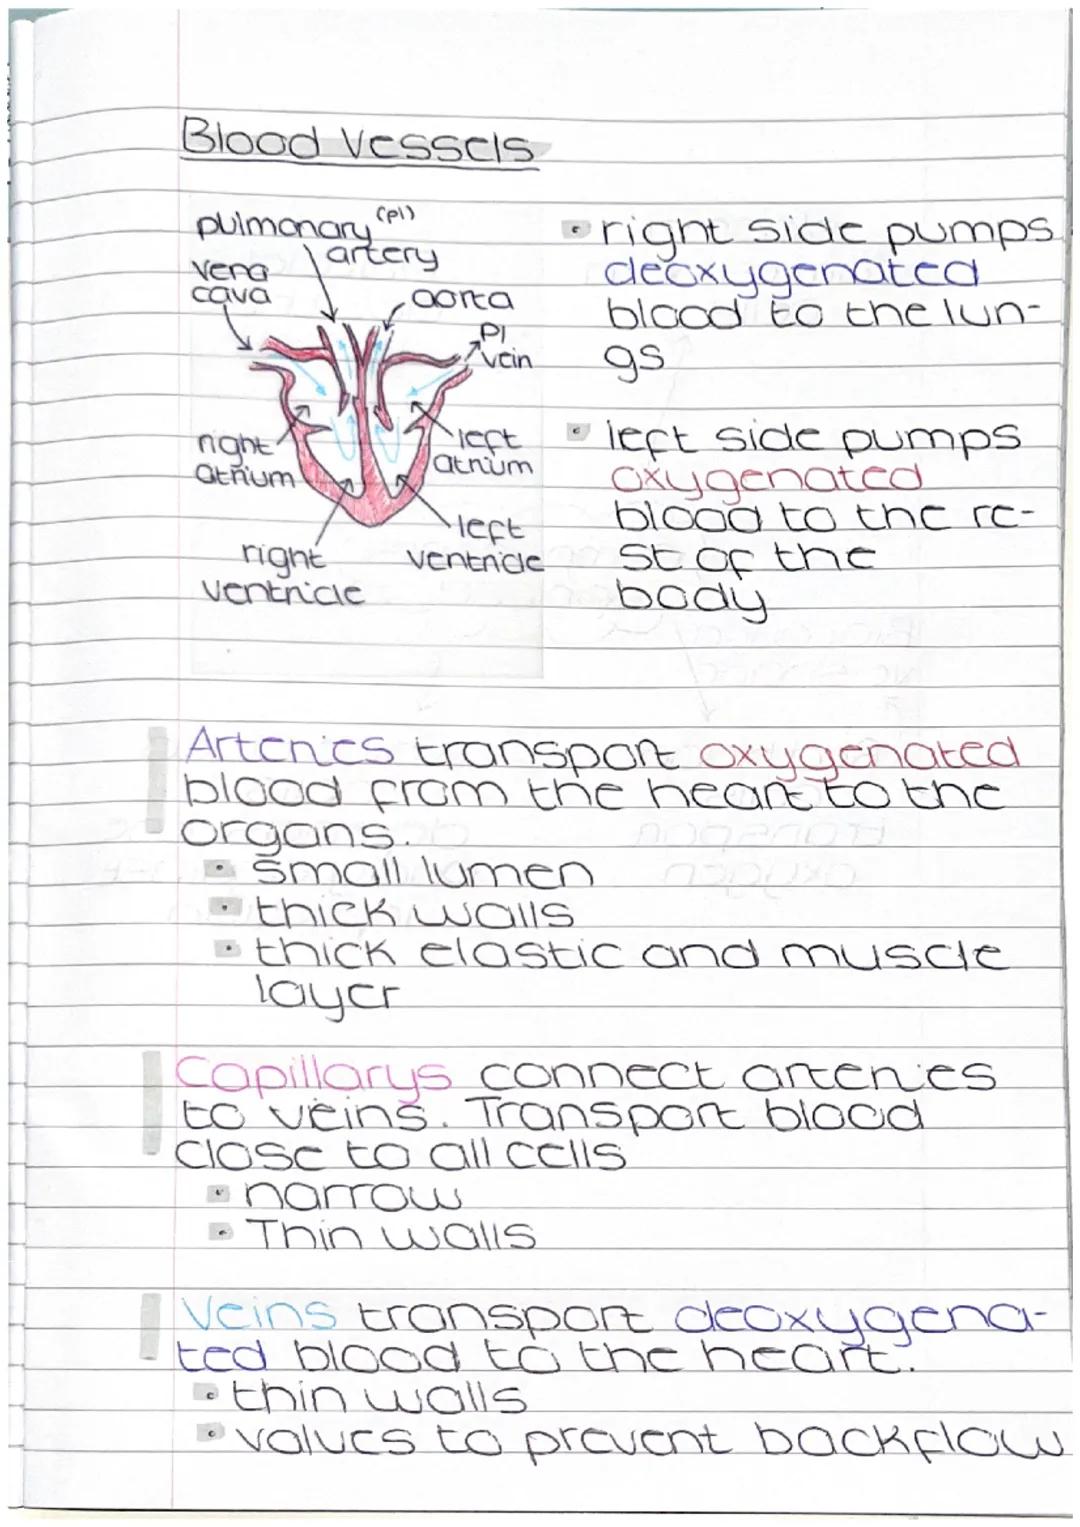 Blood Vessels
pulmonary (pl)
artery
vena
cava
aorta
Pl
vein
right
atrium
left
atrium
left
ventricle
right
ventricle
right side pumps
deoxygenated
blood to the lun-
gs
left side pumps
oxygenated
blood to the re-
st of the
body
Arteries transport oxygenated
blood from the heart to the
organs.
small lumen
thick walls
thick elastic and muscle
layer
Capillarys connect arteries
to veins. Transport blood
close to all cells
narrow
Thin walls
Veins transport deoxygena-
ted blood to the heart.
thin walls
valves to prevent backflow